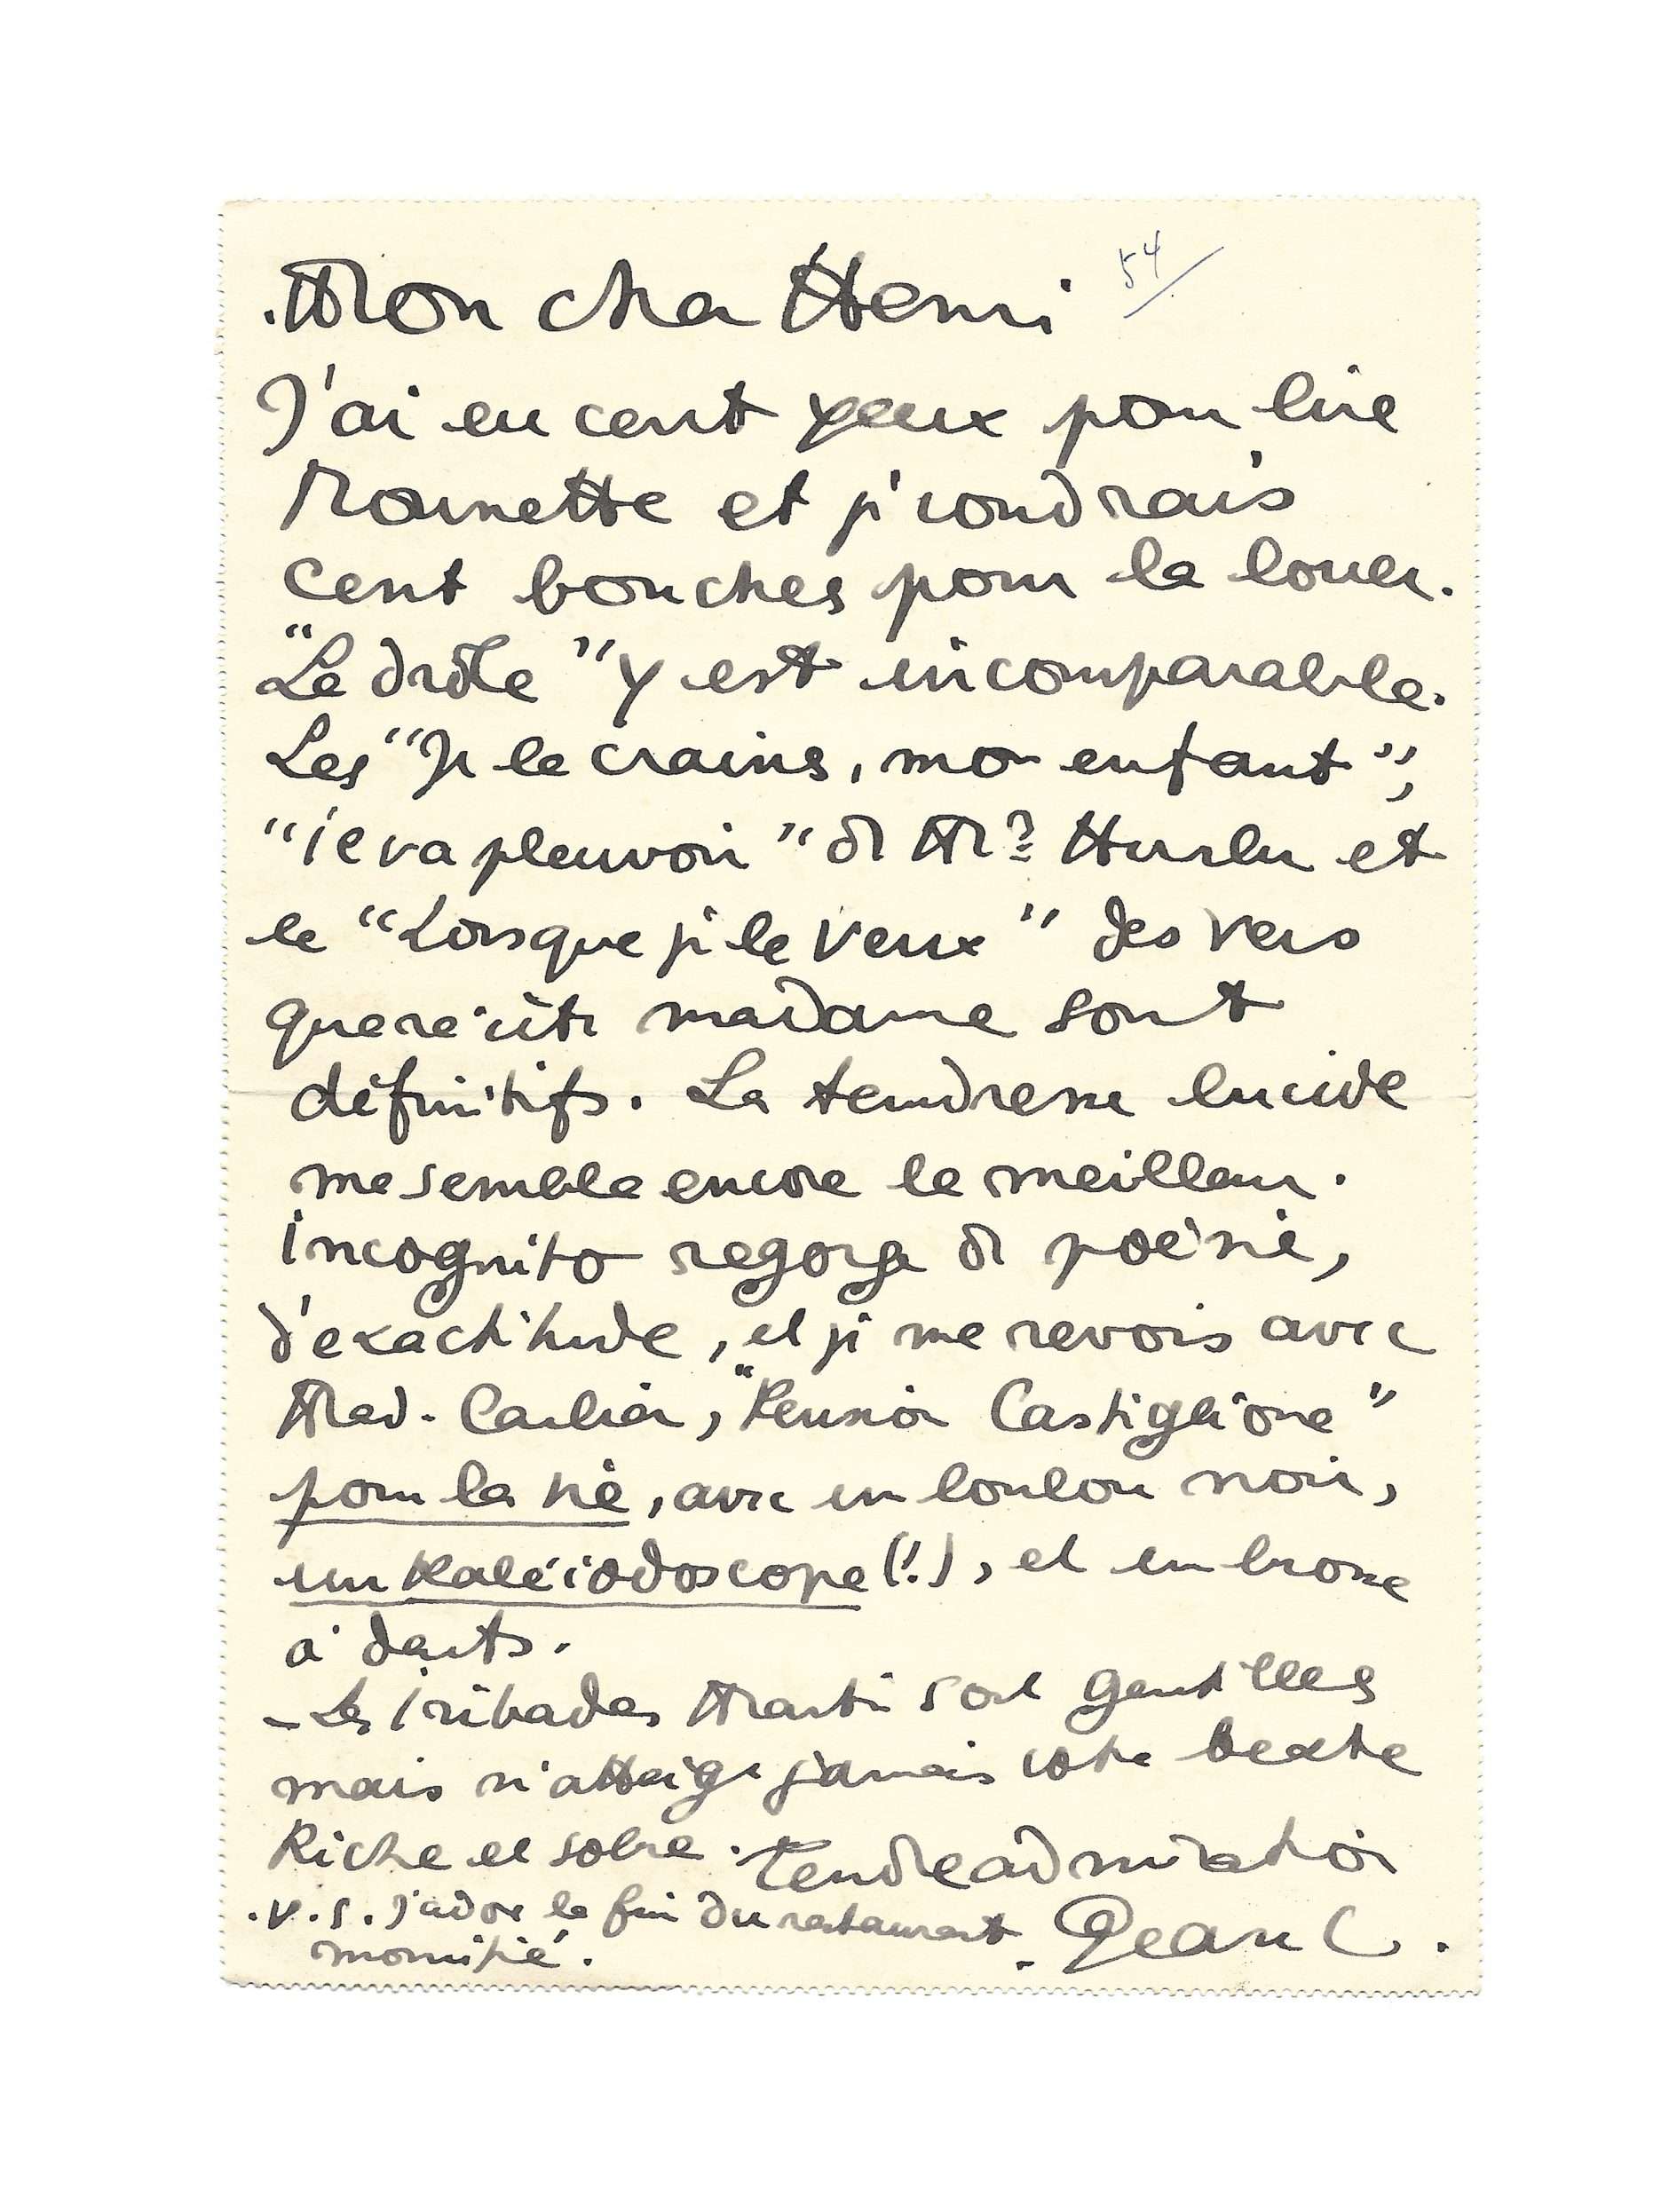 Mon cher Henri 54/
J'ai eu cent yeux pour lire
et je voudrais
cent bouches pour la louer.
"Le drôle" y est incomparable.
Les "Je le crains, mon enfant",
"il va pleuvoir" de et
le "Lorsque je le veux" des vers
que récite madame sont
définitifs. La tendresse lucide
me semble encore le meilleur.
Incognito regorge de poésie,
d'exactitude, et je me revois avec
Mad. Carlier, "Pension Castiglione"
pour la vie, avec un loulou noir,
un Kaléiodoscope (!), et un brosse
à dents.
- Les Martin sont gentilles
mais n'atteige jamais votre texte
Riche et sobre. Tendre admiration
P.S. J'adore la fin du restaurant
momifié. Jean C.